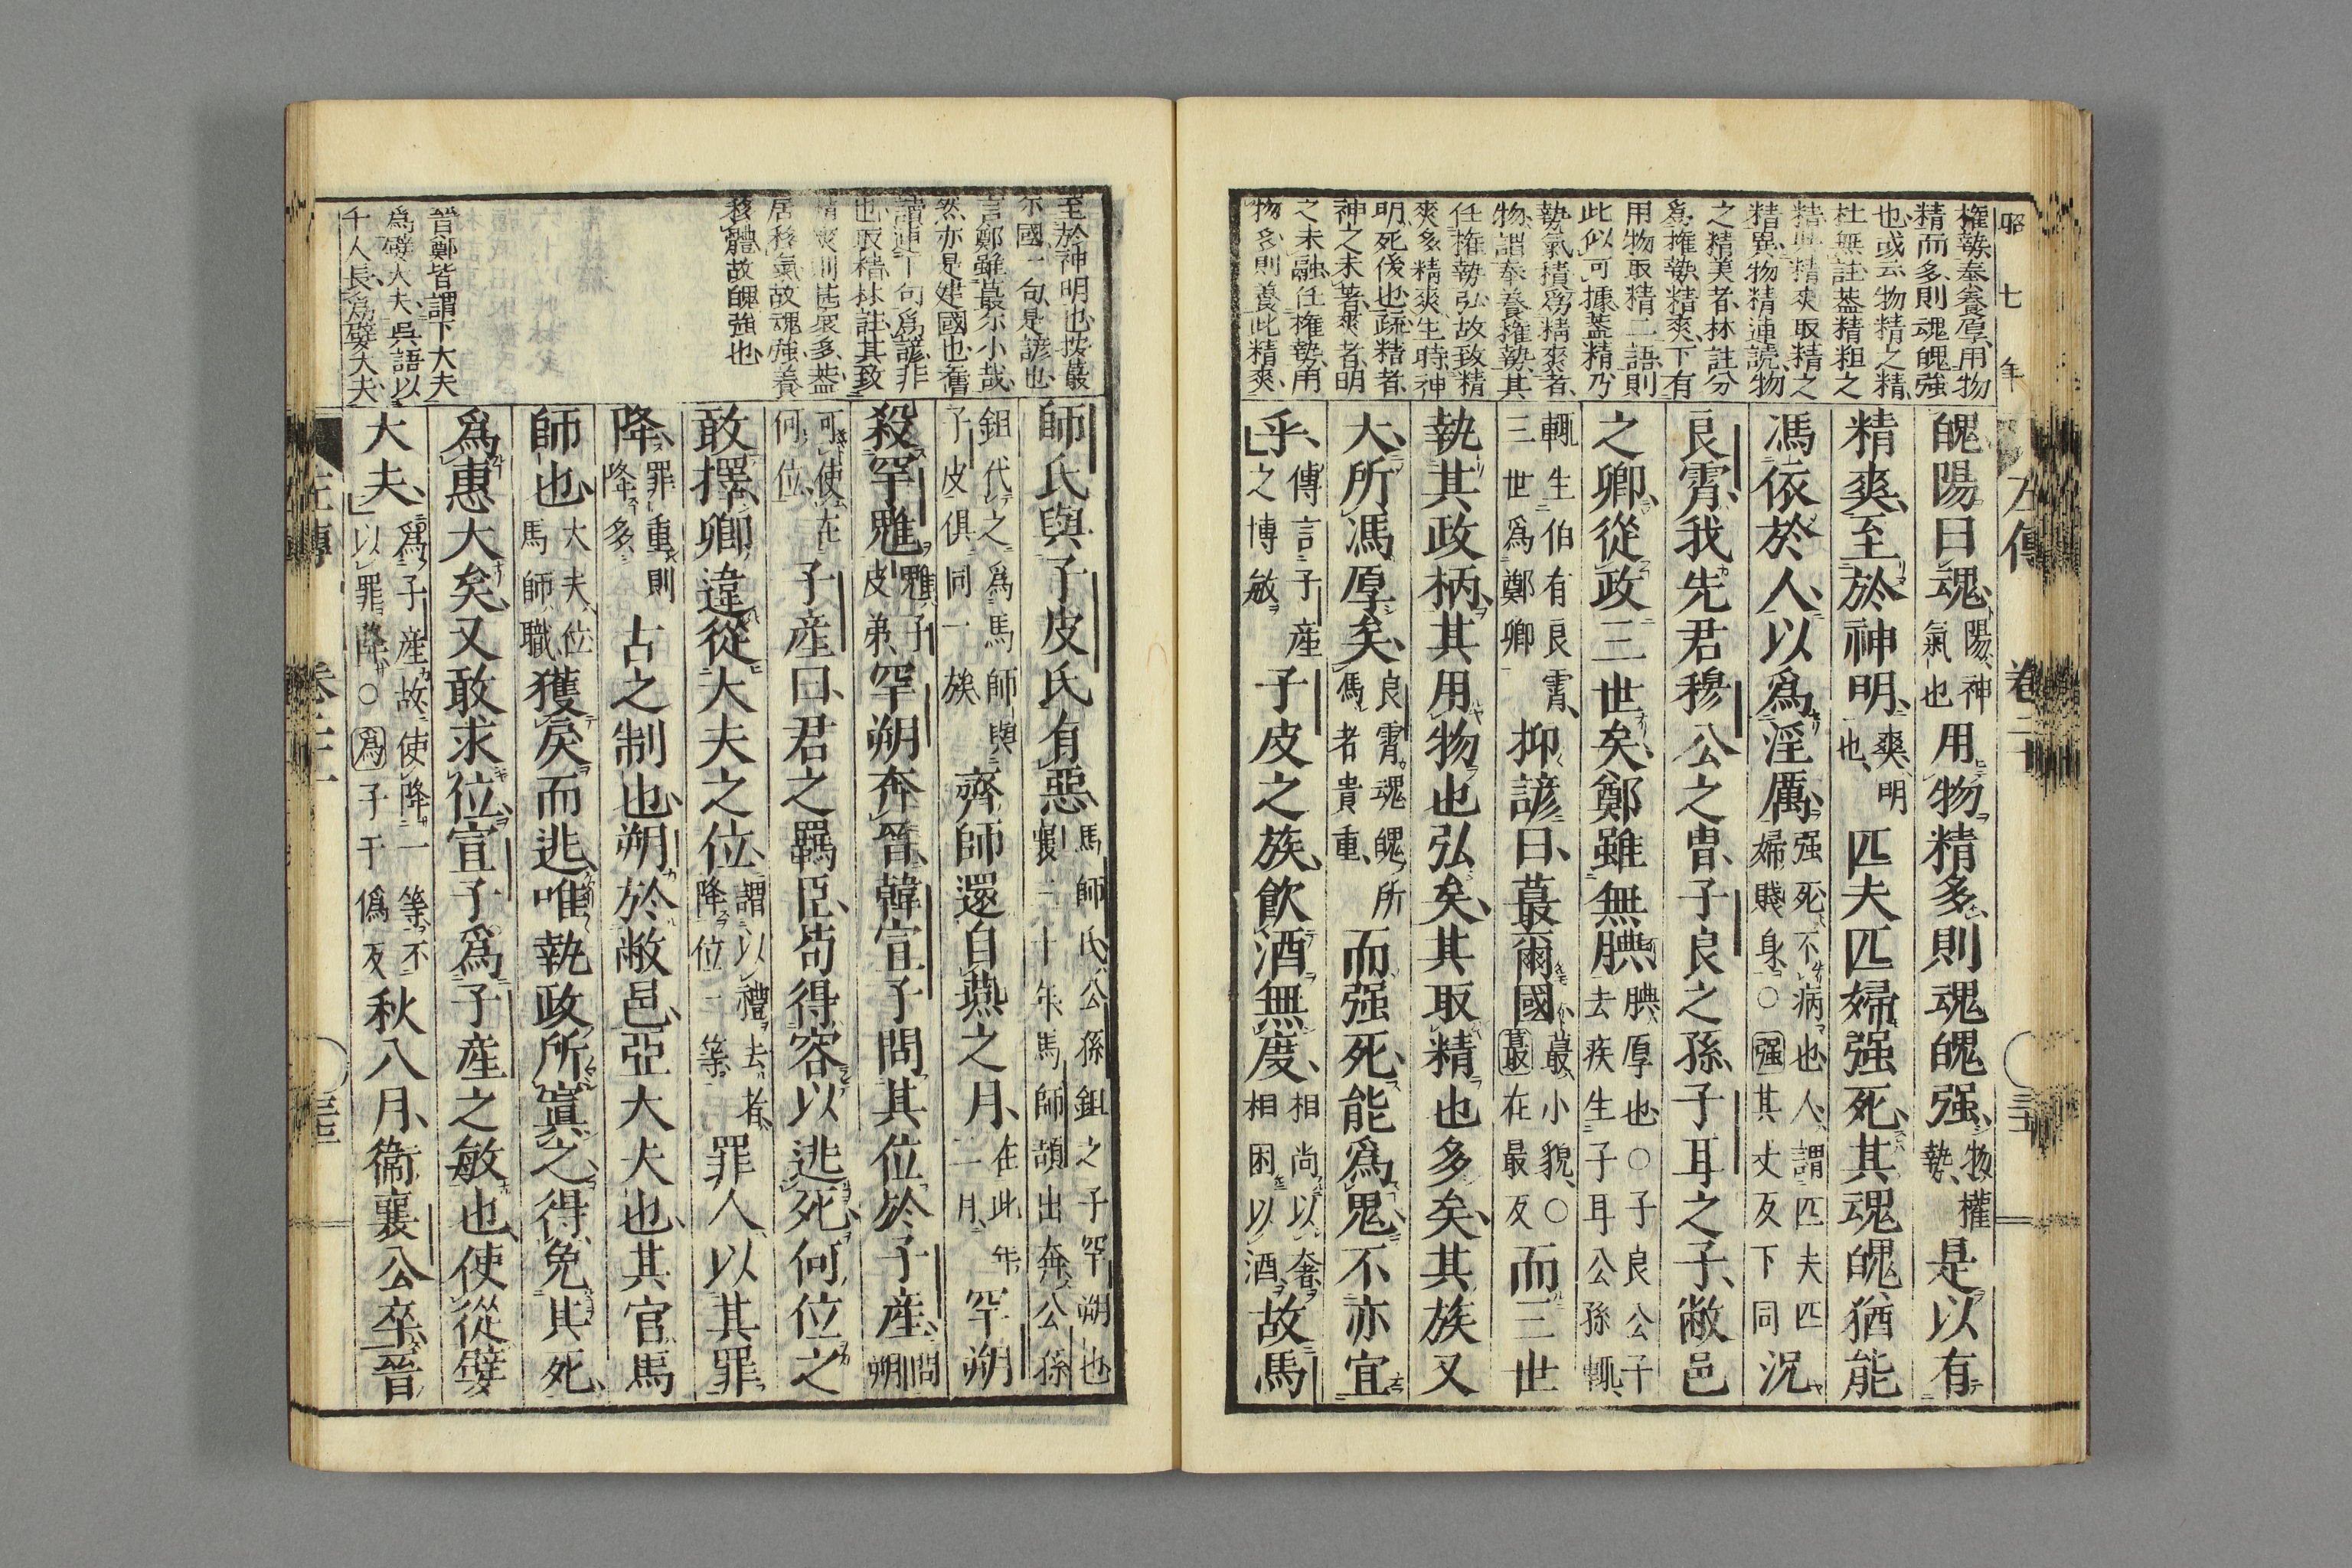 昭七年
左傳 卷二十
權勢奉養厚用物
精而多則魂魄強
也或云物精之精
杜無註蓋精粗之
精與精爽取精之
精異物精連読物
之精美者林註分
爲權勢精爽下有
用物取精二語則
此似可據蓋精乃
勢氣積爲精爽者
物謂奉養權勢其
任権勢弘故致精
爽多精爽生時神
明死後也疏精者
神之未著爽者明
之未融任權勢用
物多則養此精爽
魄陽曰魂陽神氣也用物精多則魂魄强物權勢是以有
精爽至於神明爽明也匹夫匹婦强死其魂魄猶能
馮依於人以爲淫厲强死不病也人謂匹夫匹婦賤身○强其丈反下同況
良霄我先君穆公之冑子良之孫子耳之子敝邑
之卿從政三世矣鄭雖無腆腆厚也○子良公子去疾生子耳公孫輒
輒生伯有良霄三世爲鄭卿抑諺曰蕞爾國蕞小貌○蕞在最反而三世
執其政柄其用物也弘矣其取精也多矣其族又
大所馮厚矣良霄魂魄所馮者貴重而强死能爲鬼不亦宜
乎傳言子產之博敏子皮之族飲酒無度相尚以奢相困以酒故馬
至於神明也按蕞
尓國一句是諺也
言鄭雖蕞尓小哉
然亦是建國也舊
讀連下句爲諺非
也取精林註其致
精爽則甚衆多蓋
居移氣故魂強養
移體故魄強也
晉鄭皆謂下大夫
爲嬖大夫吳語以
千人長爲嬖大夫
師氏與子皮氏有惡馬師氏公孫鉏之子罕朔也襄三十年馬師頡出奔公孫
鉏代之爲馬師與子皮俱同一族齊師還自燕之月在此年二月罕朔
殺罕魋魋子皮弟罕朔奔晉韓宣子問其位於子產問朔
可使在何位子產曰君之羈臣苟得容以逃死何位之
敢擇卿違從大夫之位謂以禮去者降位一等罪人以其罪
降罪重則降多古之制也朔於敝邑亞大夫也其官馬
師也大夫位馬師職獲戾而逃唯執政所寘之得免其死
爲惠大矣又敢求位宣子爲子產之敏也使從嬖
大夫爲子產故使降一等不以罪降○爲子于僞反秋八月衞襄公卒晉
左傳 卷二十